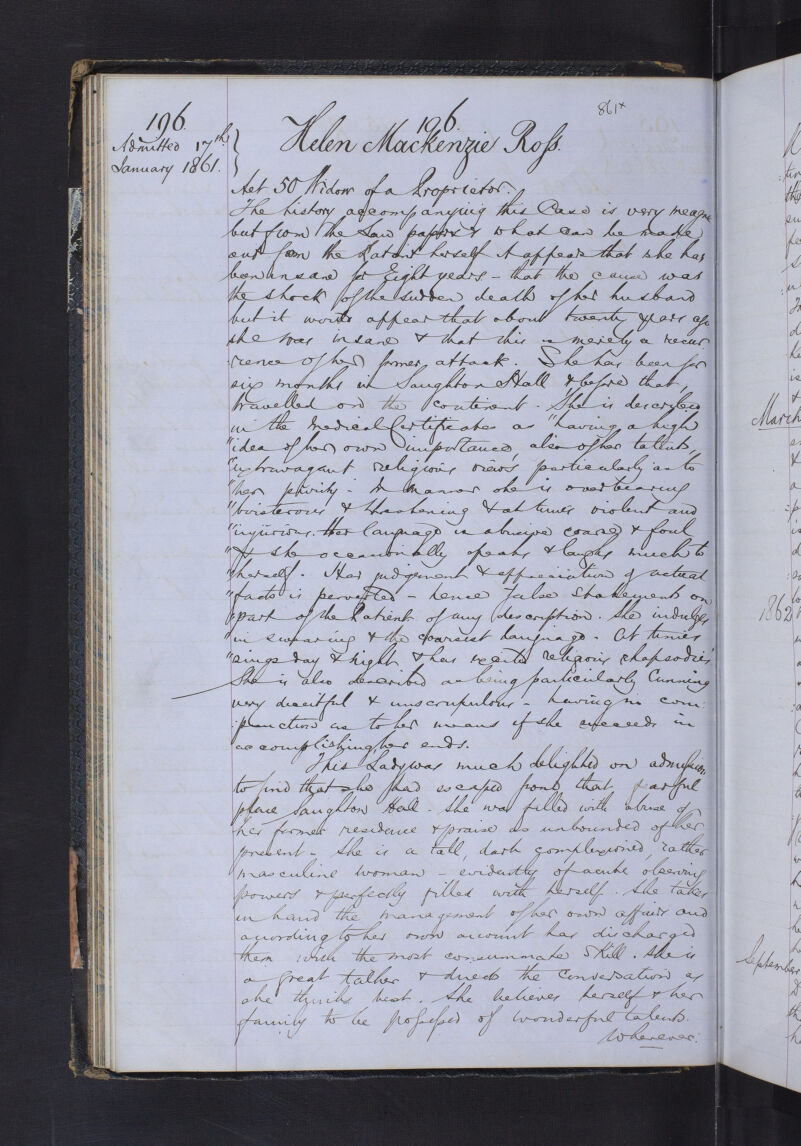 196.
196.
861ˣ
Admitted 17th
January 1861.
Helen Mackenzie Ross.
Aet 50 Widow of a Proprietor.
The history accompanying this Case is very meagre
but from the Law papers & what can be made
out from the Patient herself it appears that she has
been insane for Eight years – that the cause was
the shock of the sudden death of her husband
but it would appear that about twenty years ago
she was insane & that this is merely a recur
rence of her former attack. She has been for
six months in Saughton Hall & before that,
travelled on the continent. She is described
in the Medical Certificates as "having a high
"idea of her own importance, also of her talents,
"extravagant religious views particularly as to
"her purity – In manner she is overbearing
"boisterous & threatening & at times violent and
"injurious. Her language is abusive coarse & foul
"& she occasionally speaks & laughs much to
"herself. Her judgement & appreciation of actual
"facts is perverted – hence false statements on
"part of the Patient of any description. She indulges
"in swearing & the coarsest language. At times
"sings day & night, & has recited religious rhapsodies"
She is also described as being particularly Cunning
very deceitful & unscrupulous – having no com:
punction as to her means if she succeeds in
accomplishing her ends.
This Lady was much delighted on admission
to find that she had escaped from that fearful
place Saughton Hall. She was filled with abuse of
her former residence & praise as unbounded of her
present – She is a tall, dark complexioned, rather
masculine woman – evidently of acute observing
powers & perfectly filled with herself. She takes
in hand the management of her own affairs and
according to her own account has discharged
them with the most consummate skill. She is
a great talker & directs the conversation as
she thinks best. She believes herself & her
family to be possessed of wonderful talents.
Wherever
March
1862
September